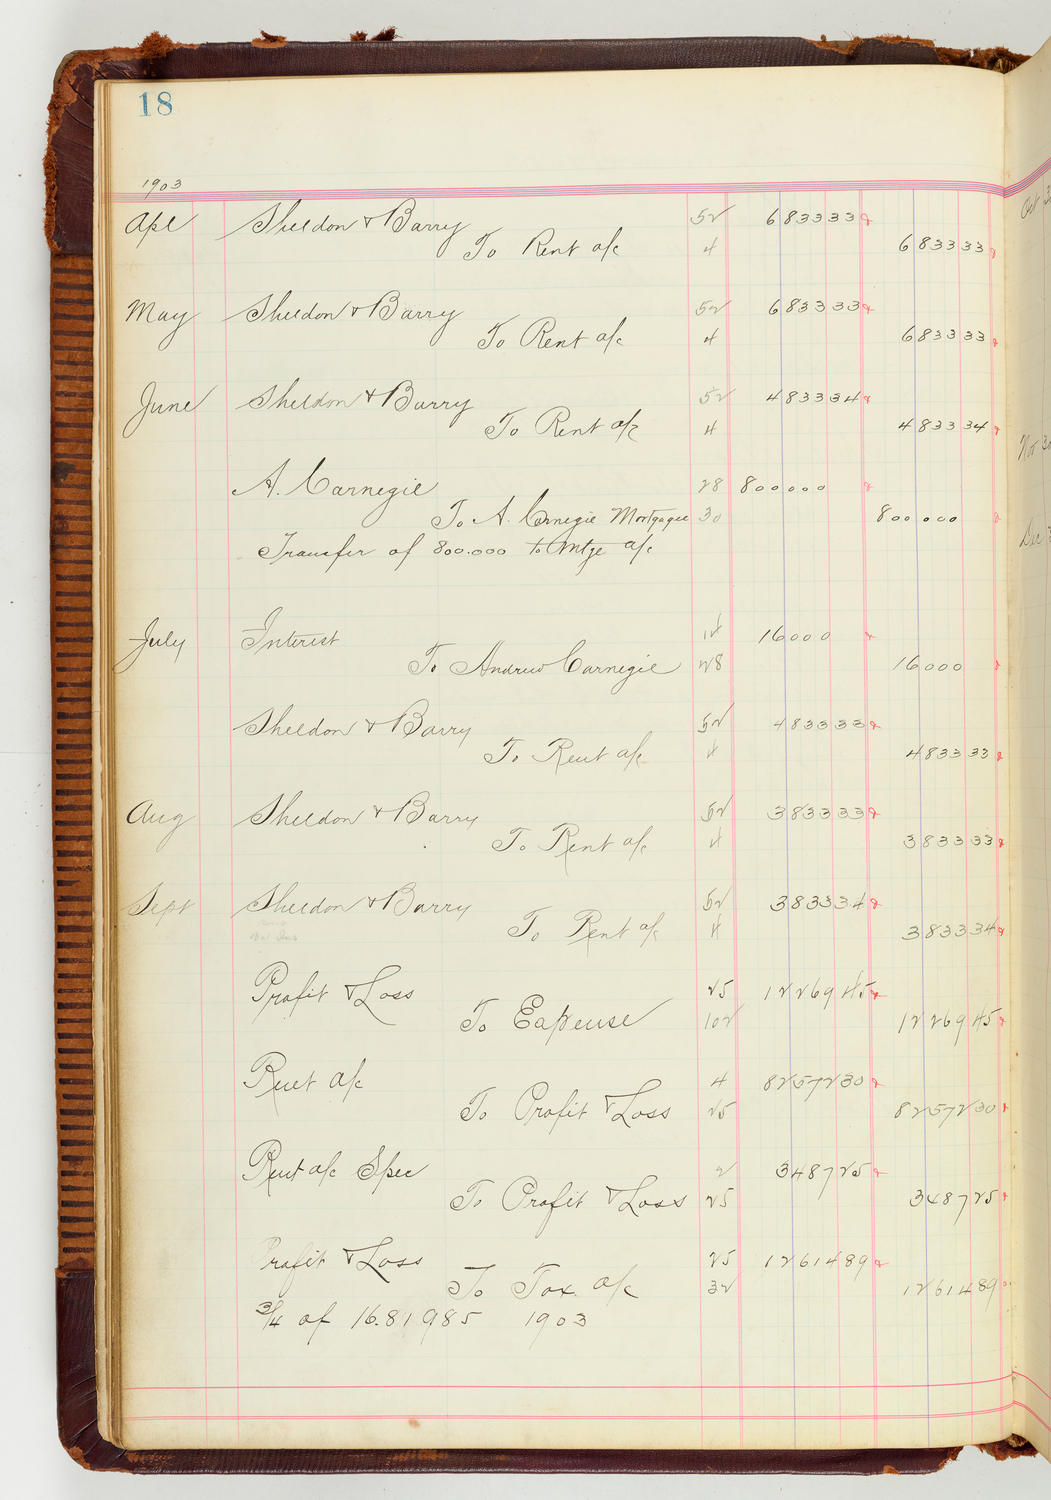 18
1903
Apl Sheldon & Barry 52 683333
To Rent a/c 4 683333
May Sheldon & Barry 52 683333
To Rent a/c 4 683333
June Sheldon & Barry 52 483334
To Rent a/c 4 483334
A. Carnegie 28 800000
To A. Carnegie Mortgagee 30 800000
Transfer of 800.000 to Mtge a/c
July Interest 14 16000
To Andrew Carnegie 28 16000
Sheldon & Barry 52 483333
To Rent a/c 4 483333
Aug Sheldon & Barry 52 383333
To Rent a/c 4 383333
Sept Sheldon & Barry 52 383334
To Rent a/c 4 383334
Profit & Loss 25 1226945
To Expense 102 1226945
Rent a/c 4 8257230
To Profit & Loss 25 8257230
Rent a/c Spec 2 348725
To Profit & Loss 25 348725
Profit & Loss 25 1261489
To Tax a/c 32 1261489
3/4 of 16.81985 1903
Oct 3
Nov 30
Dec 3